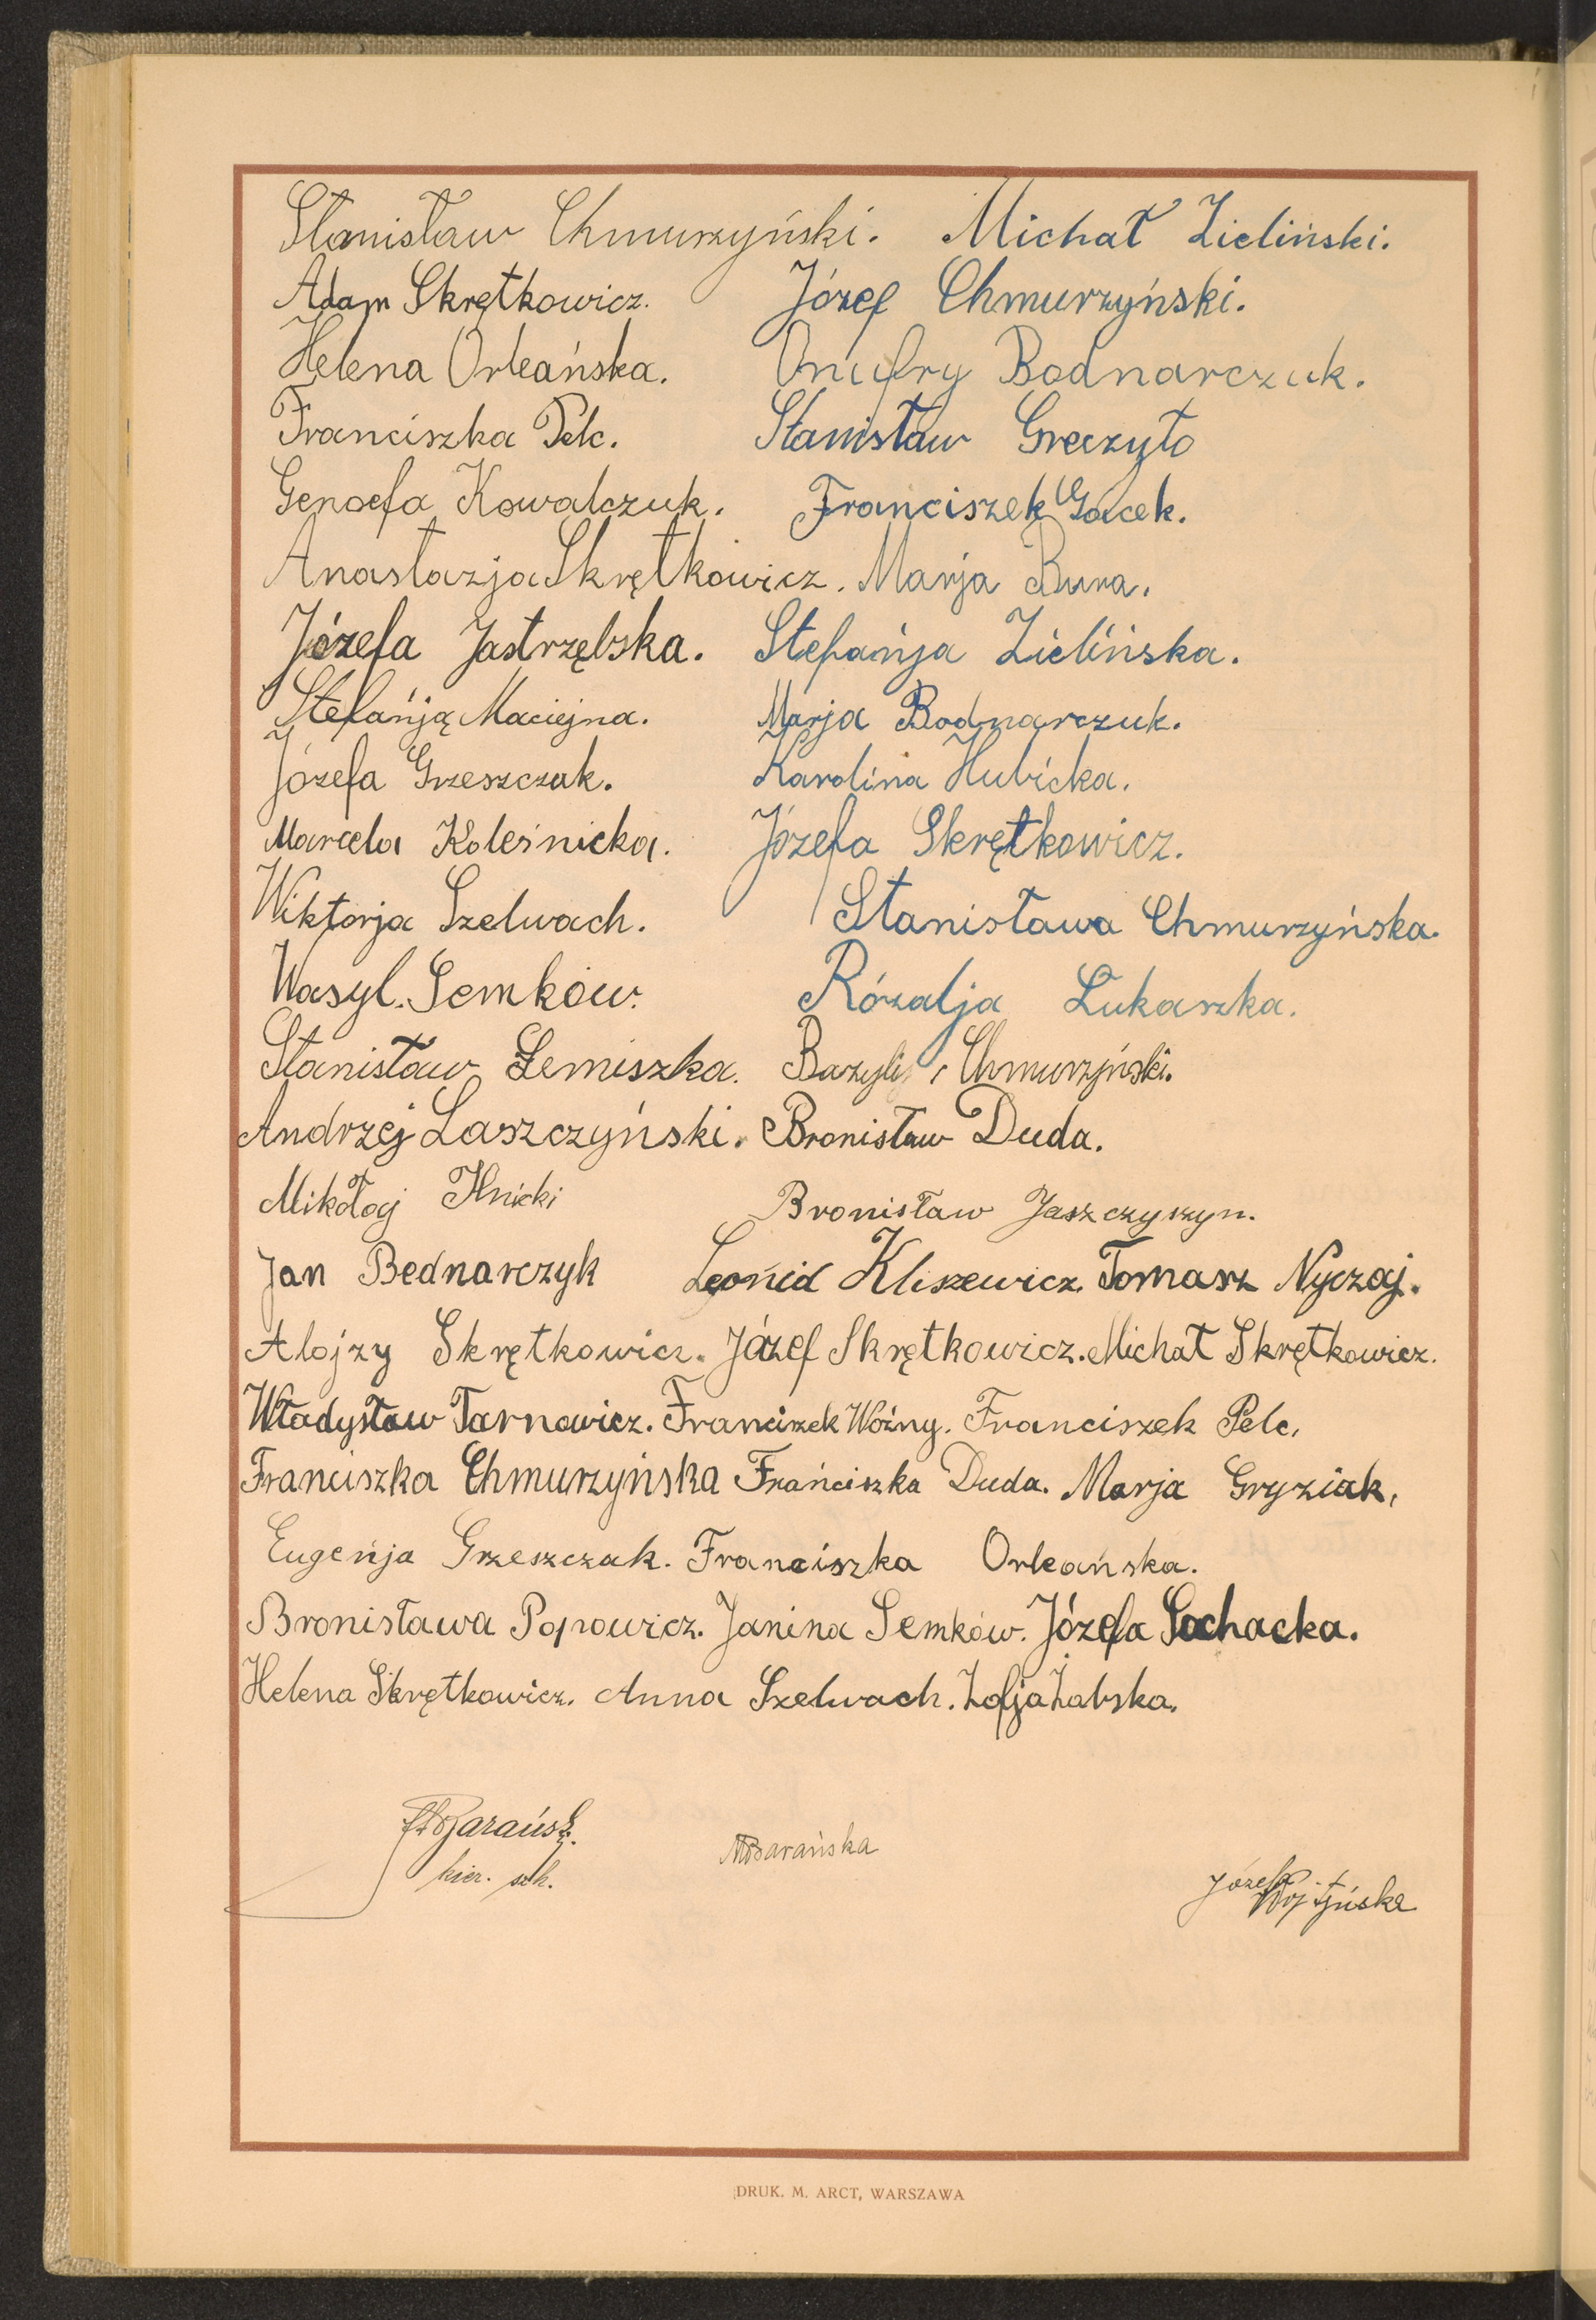 Stanisław Chmurzyński. Michał Zieliński.
Adam Skrętkowicz. Józef Chmurzyński.
Helena Orleańska. Onufry Bodnarczuk.
Franciszka Pelc. Stanisław Greczyło
Genoefa Kowalczuk. Franciszek Gacek.
Anastazja Skrętkowicz. Marja Bura.
Józefa Jastrzębska. Stefańja Zielińska.
Stefańja Maciejna. Marja Bodnarczuk.
Józefa Grzeszczak. Karolina Hubicka.
Marcela Koleśnicka. Józefa Skrętkowicz.
Wiktorja Szelwach. Stanisława Chmurzyńska.
Wasyl. Semków. Rózalja Łukaszka.
Stanisław Lemiszka. Bazyli Chmurzyński.
Andrzej Laszczyński. Bronisław Duda.
Mikołaj Ilnicki Bronisław Jaszczyszyn.
Jan Bednarczyk Leonid Kliszewicz. Tomasz Nyczaj.
Alojzy Skrętkowicz. Józef Skrętkowicz. Michał Skrętkowicz.
Władysław Tarnawicz. Franciszek Woźny. Franciszek Pelc.
Franciszka Chmurzyńska Frańciszka Duda. Marja Gryziak.
Eugeńja Grzeszczak. Franciszka Orleańska.
Bronisława Popowicz. Janina Semków. Józefa Sochacka.
Helena Skrętkowicz. Anna Szelwach. Zofja Żabska.
Barański
kier. szk.
MBarańska
Józefa
DRUK. M. ARCT, WARSZAWA